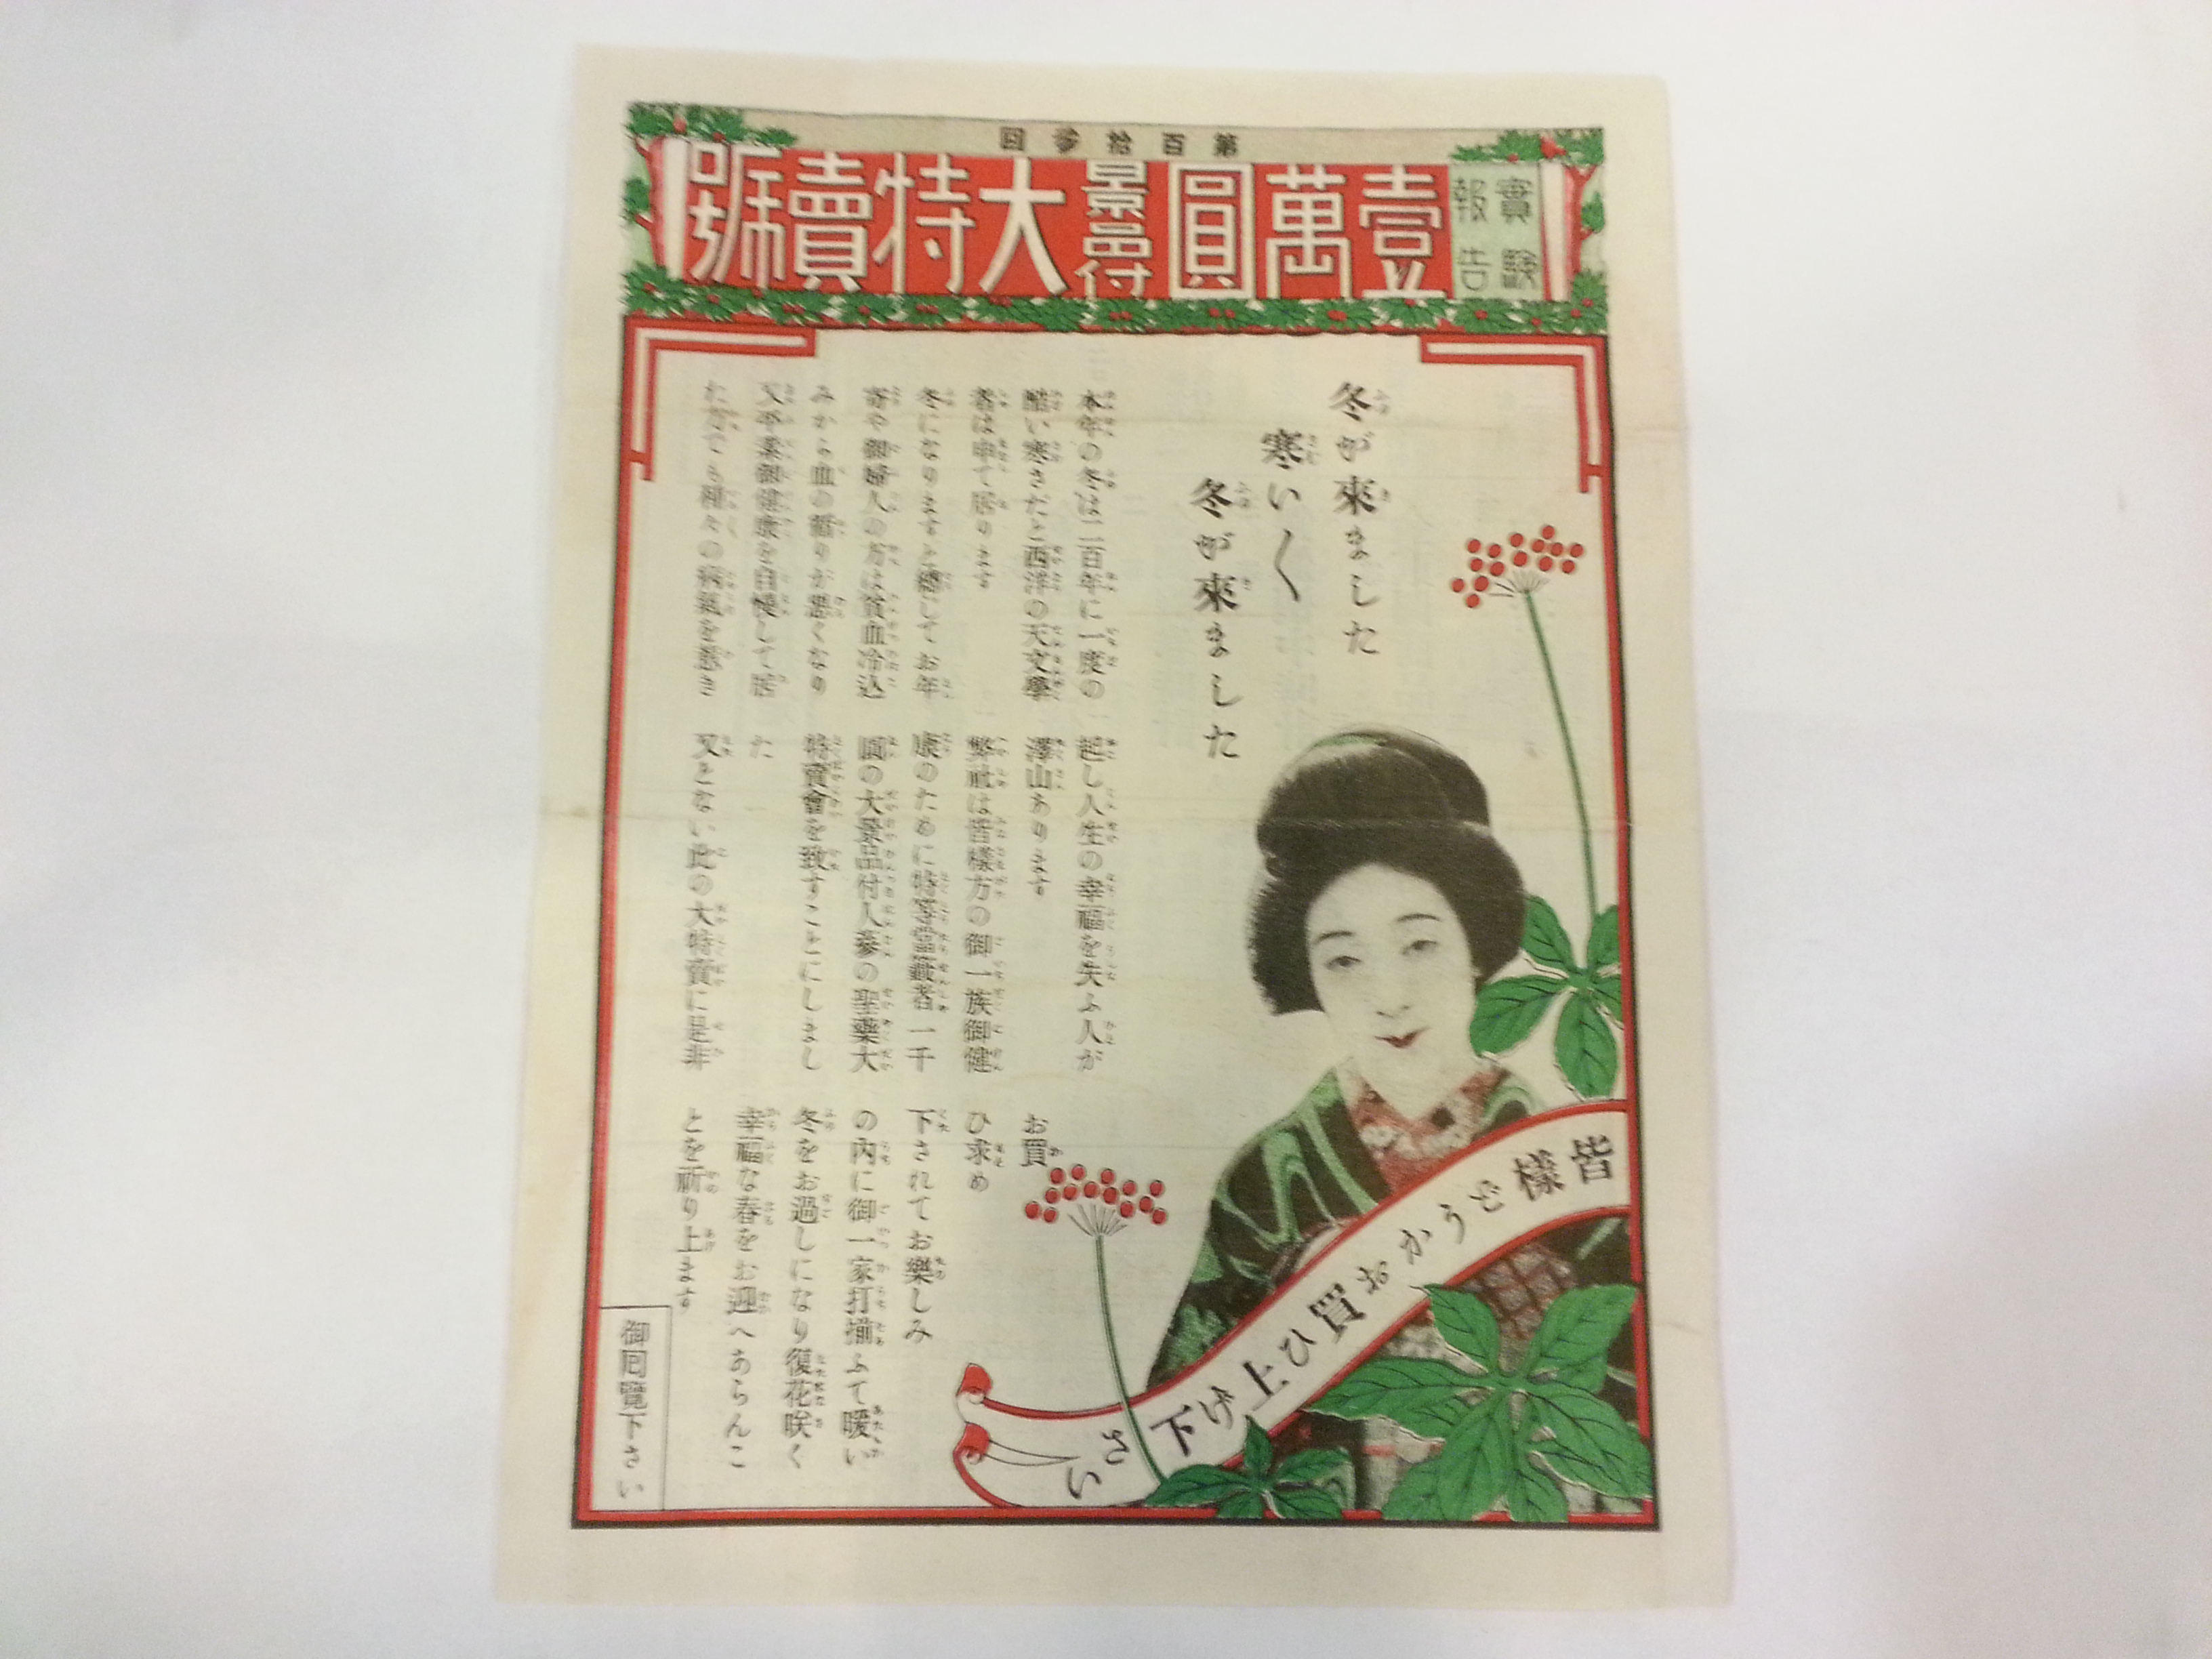 第百拾參回
實驗報告
壹萬圓景品付大特賣號
冬が來ました
寒い〱
冬が來ました
本年の冬は二百年に一度の
酷い寒さだと西洋の天文學
者は申て居ります
冬になりますと總してお年
寄や御婦人の方は貧血冷込
みから血の循りが惡くなり
又平素御健康を自慢して居
た方でも種々の病氣を惹き
起し人生の幸福を失ふ人が
澤山あります
弊社は皆樣方の御一族御健
康のために特等當籤者一千
圓の大景品付人蔘の聖藥大
特賣會を致すことにしまし
た
又とない此の大特賣に是非
お買
ひ求め
下されてお樂しみ
の內に御一家打揃ふて暖い
冬をお過しになり復花咲く
幸福な春をお迎へあらんこ
とを祈り上ます
皆樣どうかお買ひ上げ下さい
御回覽下さい